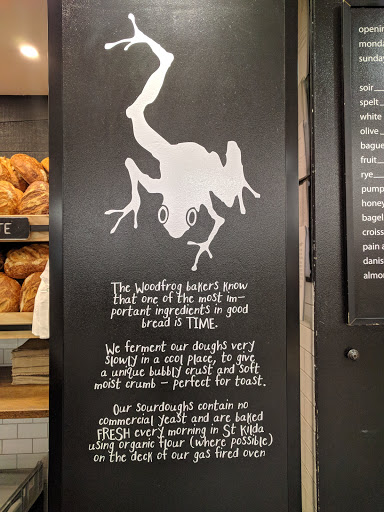 The Woodfrog bakers know
that one of the most im-
portant ingredients in good
bread is TIME.
We ferment our doughs very
slowly in a cool place, to give
a unique bubbly crust and soft
moist crumb – perfect for toast.
Our sourdoughs contain no
commercial yeast and are baked
FRESH every morning in St Kilda
using organic flour (where possible)
on the deck of our gas fired oven
TE
openin
monda
sunday
soir
spelt
white
olive
bague
fruit
rye
pump
honey
bagel
croiss
pain a
danis
almo